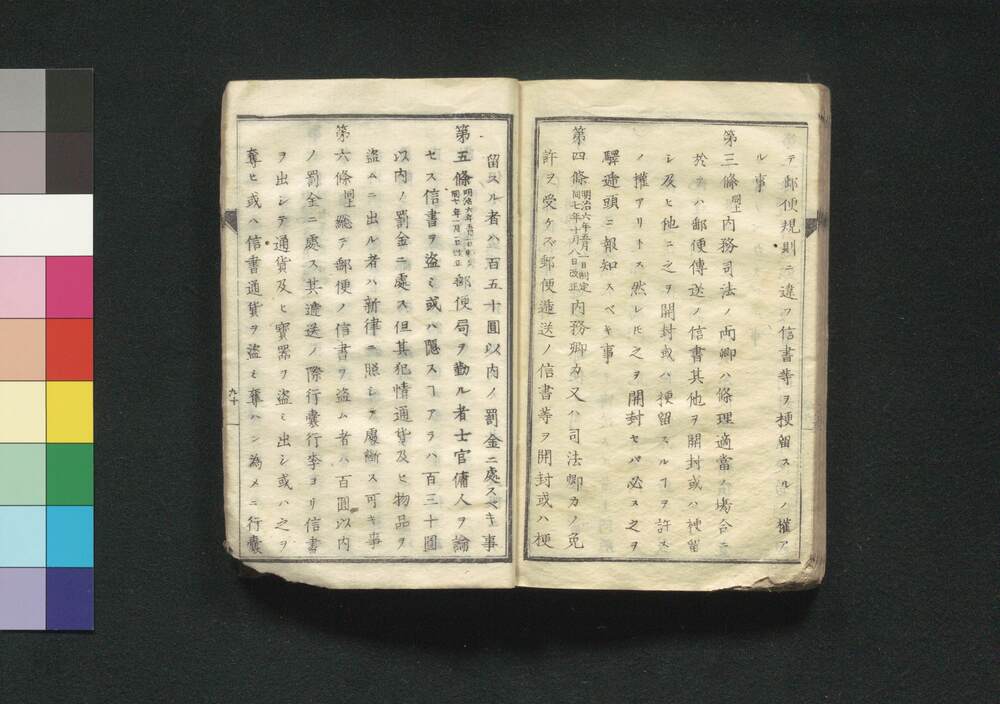 テ郵便規則ニ違フ信書等ヲ梗留スルノ權ア
ル事
第三條 同上 内務司法ノ両卿ハ條理適當ノ塲合ニ
於テハ郵便傳送ノ信書其他ヲ開封或ハ梗留
シ及ヒ他ニ之ヲ開封或ハ梗留スルヿヲ許ス
ノ權アリトス然レ𪜈之ヲ開封セハ必ス之ヲ
驛逓頭ニ報知スベキ事
第四條 明治六年五月一日制定 同七年十月八日改正 内務卿カ又ハ司法卿カノ免
許ヲ受ケズ郵便逓送ノ信書等ヲ開封或ハ梗
留スル者ハ百五十圓以内ノ罰金ニ處スベキ事
第五條 明治六年五月一日 同七年一月一日改正 郵便局ヲ勤ル者士官傭人ヲ論
セス信書ヲ盗ミ或ハ隠スヿアラハ百三十圓
以内ノ罰金ニ處ス但其犯情通貨及ヒ物品ヲ
盗ムニ出ル者ハ新律ニ照シテ處断ス可キ事
第六條 同上 総テ郵便ノ信書ヲ盗ム者ハ百圓以内
ノ罰金ニ處ス其逓送ノ際行嚢行李ヨリ信書
ヲ出シテ通貨及ヒ寳器ヲ盗ミ出シ或ハ之ヲ
奪ヒ或ハ信書通貨ヲ盗ミ奪ハン為メニ行嚢
九十